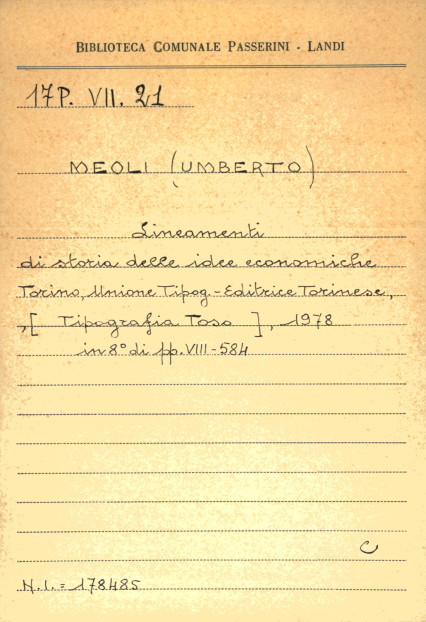 BIBLIOTECA COMUNALE PASSERINI - LANDI
17P. VII. 21
MEOLI (UMBERTO)
Lineamenti
di storia delle idee economiche
Torino, Unione Tipog-Editrice Torinese,
,[ Tipografia Toso ], 1978
in 8° di pp. VIII-584
C
N.I.= 178485